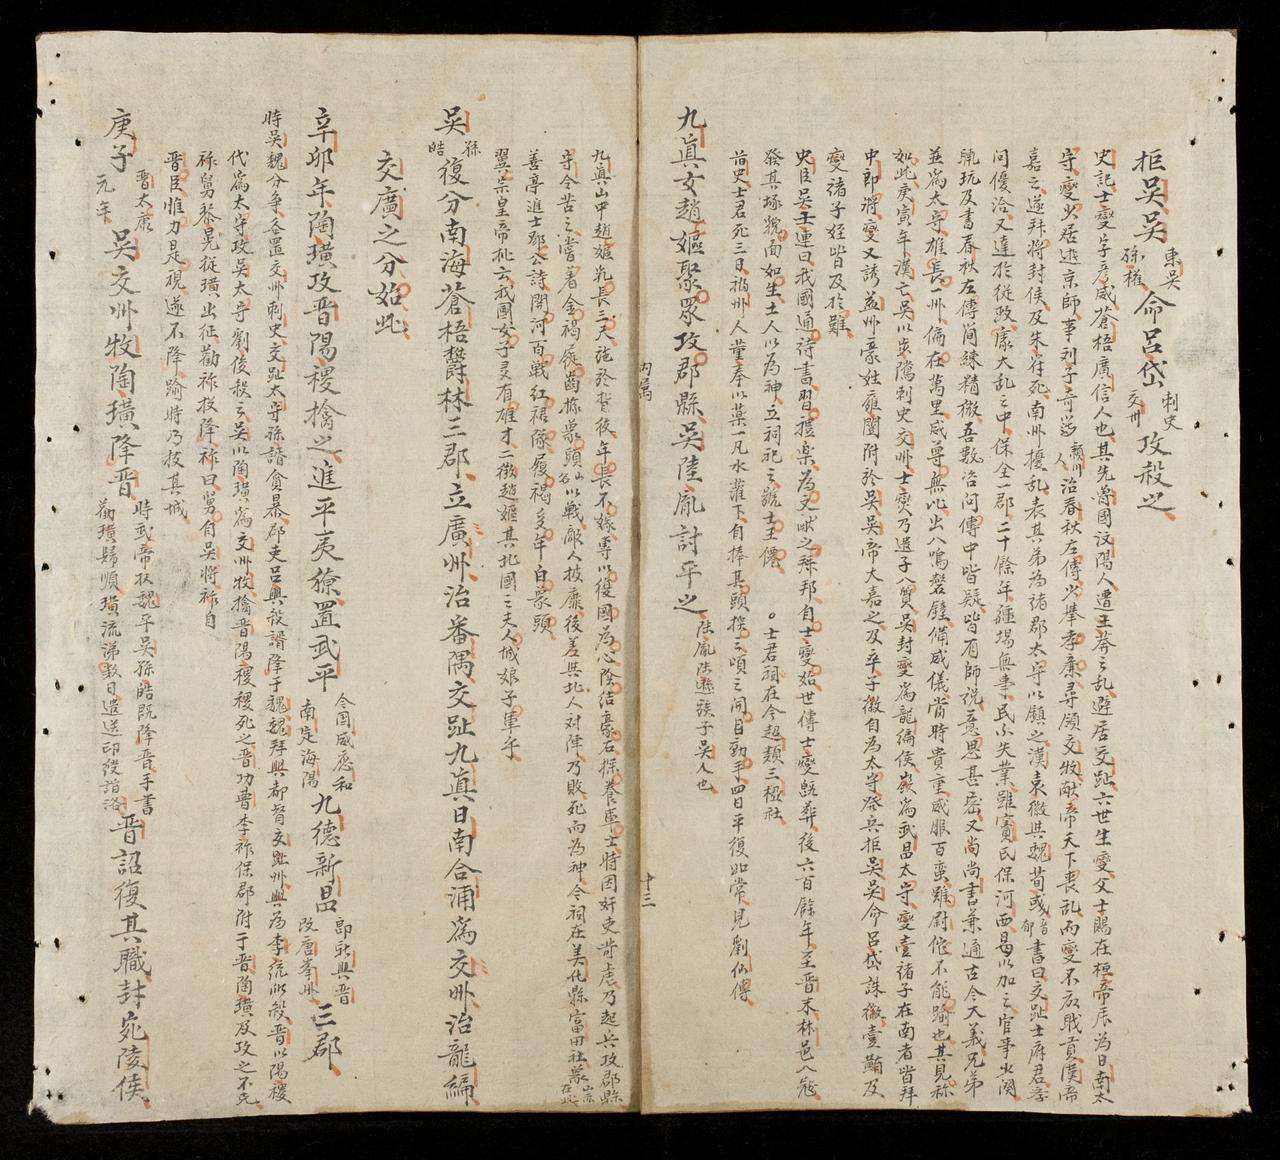 拒吳吳東吳孫權命呂岱刺史交州攻殺之
史記士燮字彥威蒼梧廣信人也其先魯國汶陽人遭王莽之乱避居交趾六世生燮父士賜在桓帝辰為日南太
守燮少居遊京師事刘子奇潁川人治春秋左傳少舉孝廉尋領交牧献帝天下喪乱而燮不廢貢漢帝
嘉之遂拜將封侯及朱符死南州擾乱表其弟為諸郡太守以領之漢袁徽與魏荀彧音郁書曰交趾士府君孝
問優洽又達於從政處大乱之中保全一郡二十餘年疆場無事民不失業雖竇氏保河西曷以加之官事少闋
輒玩及書春秋左傳简練精微吾數咨問傳中皆疑皆有師説意思甚密又尚尚書兼通古今大義兄弟
並為太守雄長一州偏在萬里威尊無比出入鳴磬鍾備威儀當時貴重威服百蛮雖尉佗不能踰也其見称
如此庚寅年漢亡吳以步隲刺史交州士燮乃遣子入質吳封燮為龍編侯嶷為武昌太守燮壹諸子在南者皆拜
中郎將燮又誘益州豪姓雍闓附於吳吳帝大嘉之及卒子徽自為太守發兵拒吳吳命呂岱誅徽壹䵋及
燮諸子姪皆及於難
史臣吳士連曰我國通詩書習禮樂為文献之邦自士燮始世傳士燮既葬後六百餘年至晉末林邑入寇
發其塚貌面如生土人以為神立祠祀之號士王僊　○士君祠在今超類三椏社
昔史士君死三日福州人董奉以薬一凡水灌下自捧其頭挨之頃之间目動手四日平復如常見劉仙傳
九眞女趙嫗聚眾攻郡縣吳陸胤討平之陸胤陸遜族子吳人也
内屬
十三
九眞山中趙嫗乳長三尺施於背後年長不嫁專以復國為心陰結豪右探養軍士時因奸吏苛虐乃起兵攻郡縣
守令苦之嘗着金褐屐齒據象頭山名以戦敵人披靡後差與北人对陣乃敗死而為神今祠在美化縣富田社象山亦在此
善亭進士鄧公詩開河百戦紅裙隊履褐多年白象頭
翼宗皇帝批云我國女子灵有雄才二徵趙嫗其北國之夫人城娘子軍乎
吳孫皓復分南海蒼梧欝林三郡立廣州治番隅交趾九眞日南合浦為交州治龍編
交廣之分始此
辛卯年陶璜攻晉陽稷擒之進平夷獠置武平今国威慈和南定海陽九德新昌即新興晉改唐峯州三郡
時吳魏分争各置交州刺史交趾太守孫諝貪暴郡吏呂興殺諝降于魏魏拜興都督交趾州興為李統所殺晉以陽稷
代為太守攻吳太守劉俊殺之吳以陶璜為交州牧擒晉陽稷稷死之晉功曹李祚保郡附于晉陶璜及攻之不克
祚舅黎晃從璜出征勸祚投降祚曰舅自吳將祚自
晉臣惟力是視遂不降踰時乃拔其城
庚子晉太康元年吳交州牧陶璜降晉時武帝挾魏平吳孫皓既降晉手書勸璜歸順璜流涕数日遣送印綬詣洛晉詔復其職封宛陵侯